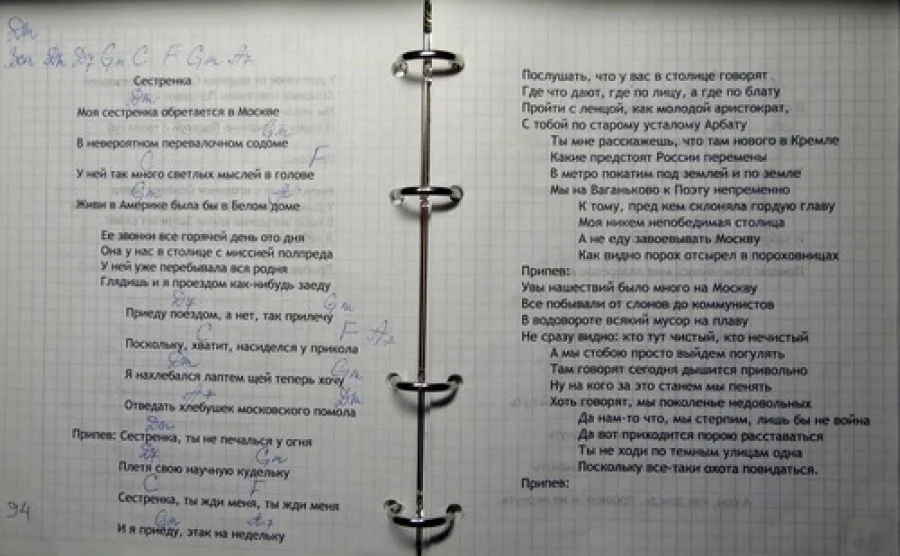 Dm
Вст Dm D7 Gm C F Gm A7
Сестренка
Dm
Моя сестренка обретается в Москве
Gm
В невероятном перевалочном содоме
C F
У ней так много светлых мыслей в голове
Gm A7
Живи в Америке была бы в Белом доме
Ее звонки все горячей день ото дня
Она у нас в столице с миссией полпреда
У ней уже перебывала вся родня
Глядишь и я проездом как-нибудь заеду
D7 Gm
Приеду поездом, а нет, так прилечу
C F A7
Поскольку, хватит, насиделся у прикола
Dm Gm
Я нахлебался лаптем щей теперь хочу
A7 Dm
Отведать хлебушек московского помола
Dm
Припев: Сестренка, ты не печалься у огня
D7 Gm
Плетя свою научную кудельку
C F
Сестренка, ты жди меня, ты жди меня
Gm A7
И я приеду, этак на недельку
94
Послушать, что у вас в столице говорят
Где что дают, где по лицу, а где по блату
Пройти с ленцой, как молодой аристократ,
С тобой по старому усталому Арбату
Ты мне расскажешь, что там нового в Кремле
Какие предстоят России перемены
В метро покатим под землей и по земле
Мы на Ваганьково к Поэту непременно
К тому, пред кем склоняла гордую главу
Моя никем непобедимая столица
А не еду завоевывать Москву
Как видно порох отсырел в пороховницах
Припев:
Увы нашествий было много на Москву
Все побывали от слонов до коммунистов
В водовороте всякий мусор на плаву
Не сразу видно: кто тут чистый, кто нечистый
А мы стобою просто выйдем погулять
Там говорят сегодня дышится привольно
Ну на кого за это станем мы пенять
Хоть говорят, мы поколенье недовольных
Да нам-то что, мы стерпим, лишь бы не война
Да вот приходится порою расставаться
Ты не ходи по темным улицам одна
Поскольку все-таки охота повидаться.
Припев: